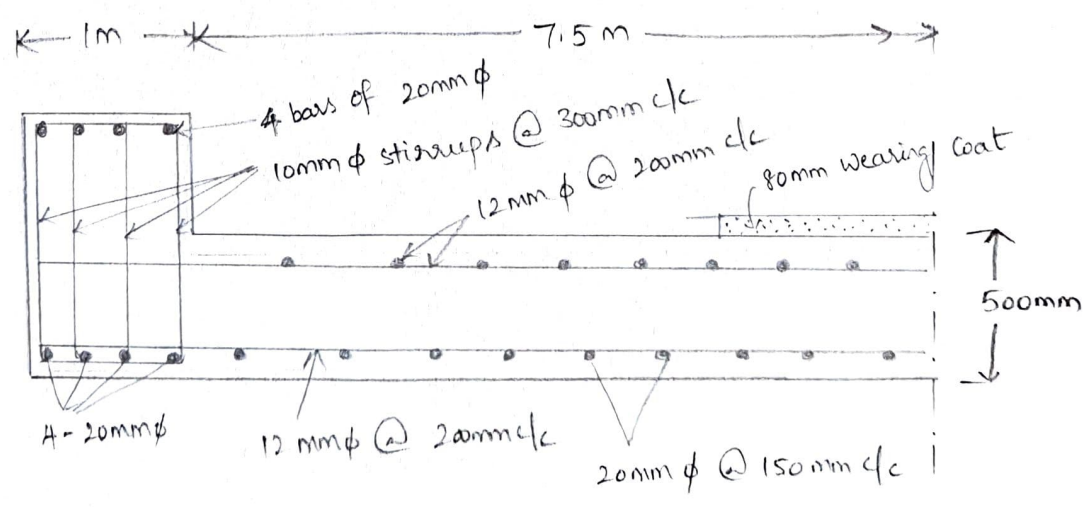 1m
7.5 m
4 bars of 20mm ϕ
10mm ϕ stirrups @ 300mm c/c
12mm ϕ @ 200mm c/c
80mm wearing coat
500mm
4 - 20mmϕ
12 mmϕ @ 200mm c/c
20mm ϕ @ 150mm c/c